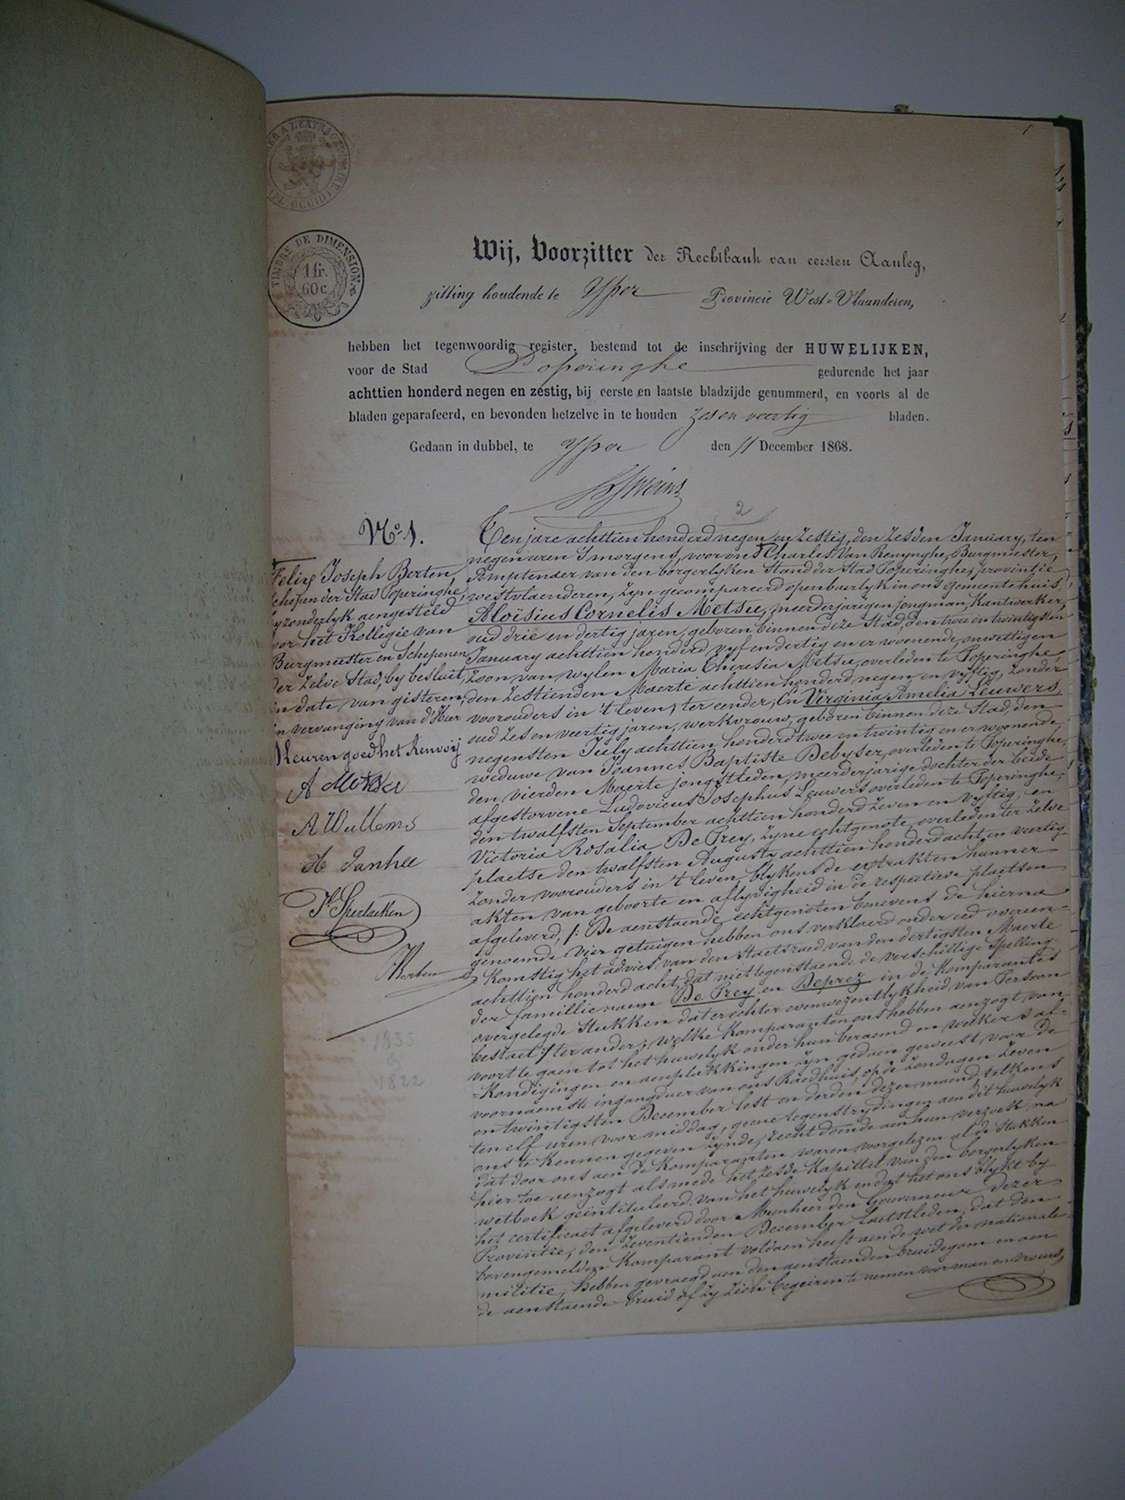 TIMBRE DE DIMENSION
1 fr.
60 c
1
Wij, Voorzitter der Rechtbank van eersten Aanleg,
zitting houdende te Yper Provincie West-Vlaanderen,
hebben het tegenwoordig register, bestemd tot de inschrijving der HUWELIJKEN,
voor de Stad Poperinghe gedurende het jaar
achttien honderd negen en zestig, bij eerste en laatste bladzijde genummerd, en voorts al de
bladen geparafeerd, en bevonden hetzelve in te houden zes en veertig bladen.
Gedaan in dubbel, te Yper den 11 December 1868.
2
No. 1.
Felix Joseph Berten,
Schepen der Stad Poperinghe,
byzonderlyk aengesteld
voor het Kollegie van
Burgmeester en Schepenen
der Zelve Stad, by besluit
in date van gisteren,
in vervanging van d'Heer
Keuren goed het Renvoij
A Metsu
A Willems
H Janhee
Berten
1835
1822
Ten jare achttien honderd negen en Zestig, den Zesden January, ten
negen uren 's morgens, voor ons Charles Van Renynghe, Burgmeester,
Amptenaer van den borgerlyken Stand der Stad Poperinghe, provintie
westvlaenderen, zyn gecompareerd openbaerlyk in ons gemeentehuis
Aloïsius Cornelis Metsu, meerderjarigen jongman, Kantwerker,
oud drie en dertig jaren, geboren binnen deze Stad, den twee en twintigsten
January achttien honderd vyf en dertig en er woonende, onwettigen
Zoon van wylen Maria Theresia Metsu, overleden te Poperinghe
den Zestienden Maerte achttien honderd negen en vyftig, Zonder
voorouders in 't leven, ter eender, En Virginia Amelia Leuwers,
oud Zes en veertig jaren, werkvrouw, geboren binnen deze Stad, den
negensten July achttien honderd twee en twintig en er woonende,
weduwe van Joannes Baptiste Debyser, overleden te Poperinghe,
den vierden Maerte jongstleden, meerderjarige dochter der beide
afgestorvene Ludovicus Josephus Leuwers overleden te Poperinghe,
den twalfsten September achttien honderd Zeven en vyftig, en
Victoria Rosalia De Prey, zyne echtgenote, overleden ter Zelve
plaetse den twalfsten Augusty achttien honderd acht en veertig
Zonder voorouders in 't leven, blykens de extrakten hunner
akten van geboorte en aflyvigheid in de respective plaetsen
afgeleverd, /: De aenstaende echtgenoten benevens de hierna
genoemde vier getuigen hebben ons verklaerd onder eed overeen-
komstig het advies van den Staetsraed van den dertigsten Maerte
achttien honderd acht, dat niettegenstaende de verschillige Spelling
der famillie naem De Prey en Deprez in de Komparantes
overgelegde Stukken dat er echter eenwezentlykheid van Persoon
bestaet :/ ter ander; welke Komparanten ons hebben aenzogt van
voort te gaen tot het huwelyk onder hun beraemd en welkers af-
kondigingen en aenplakkingen zyn gedaen geweest voor de
voornaemste ingangdeur van ons Raedhuis, op de Zondagen Zeven
en twintigsten December lest en derden dezer maend, telkens
ten elf uren voor middag, geene tegenstrydingen aen dit huwelyk
ons te kennen gegeven zynde, recht doende aen hun verzoek na
dat door ons aen de Komparanten waren voorgelezen al de Stukken
hier toe aenzogt als mede het Zesde Kapittel van den borgerlyken
wetboek geïntituleerd, van het huwelyk en dat het ons blykt by
het certificaet afgeleverd door Mynheer den Gouverneur dezer
Provintie, den Zeventienden December laetstleden, dat den
bovengemelden Komparant voldaen heeft aen de wet der nationale
militie, hebben gevraegd aen den aenstaenden bruidegom en aen
de aenstaende bruid of zy zich begeiren te nemen voor man en vrouw,